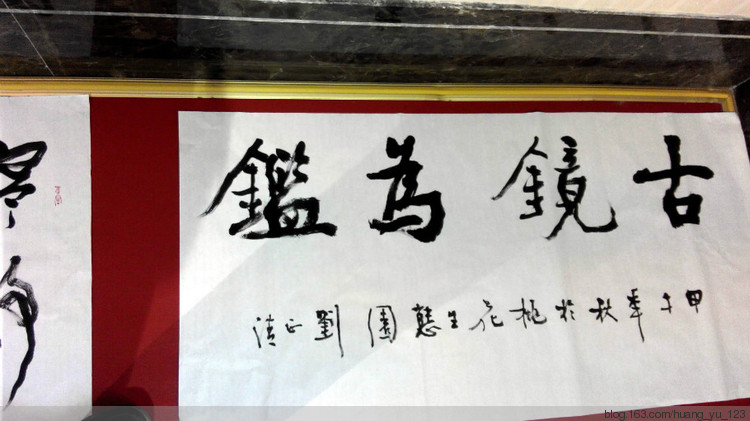 古鏡為鑑
甲午季秋於桃花生態園劉正清
blog.163.com/huang_yu_123